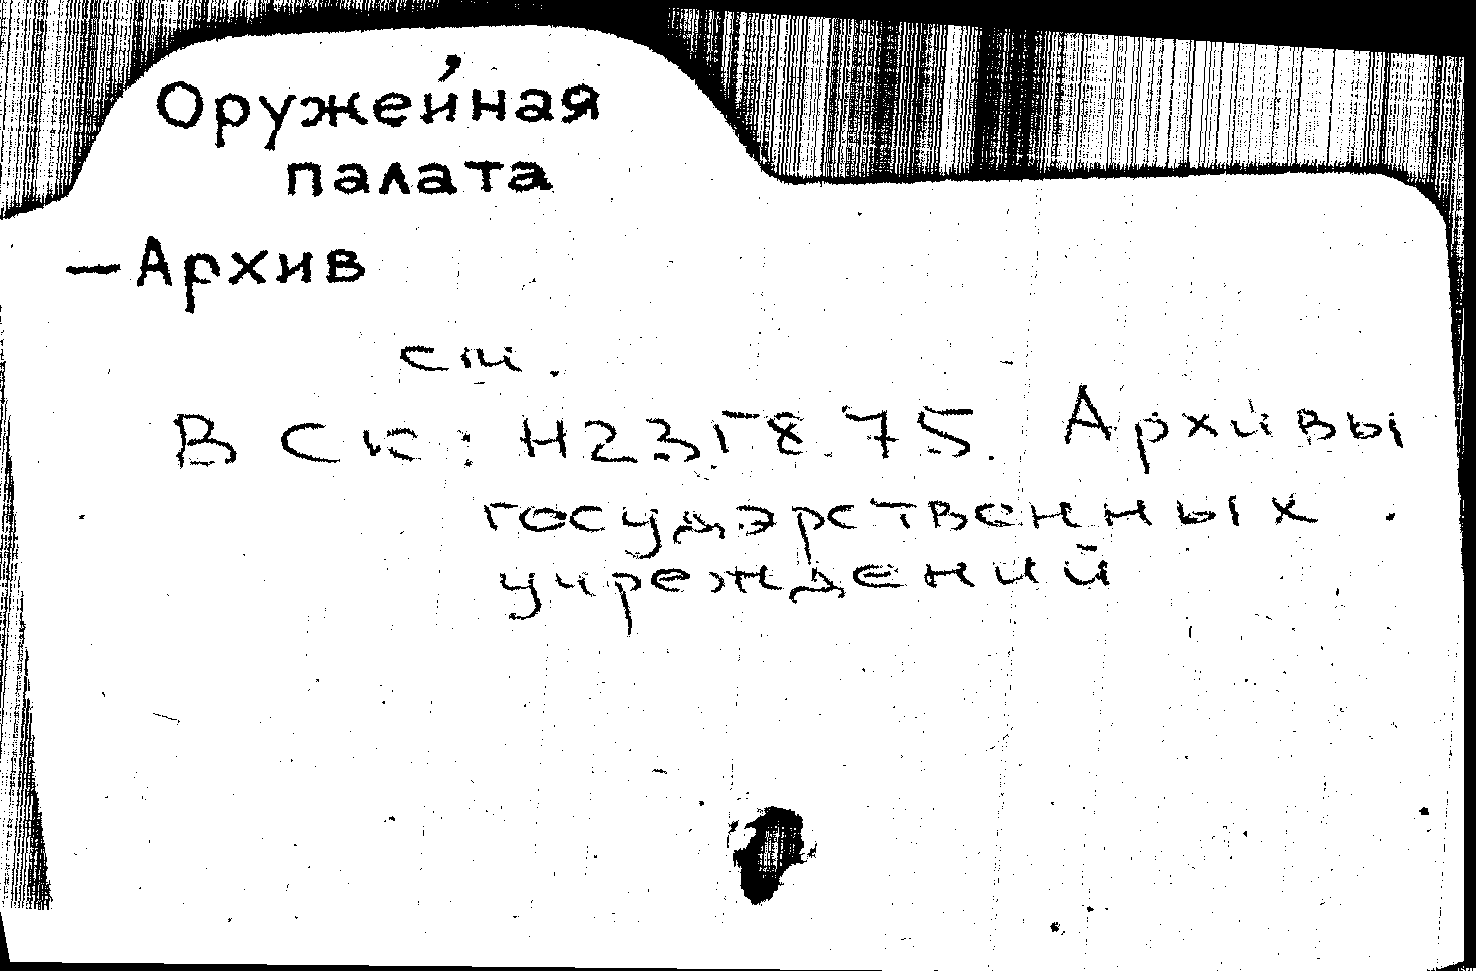 Оружейная
палата
— Архив
см.
В СК: Н23Г8.75. Архивы
государственных
учреждений